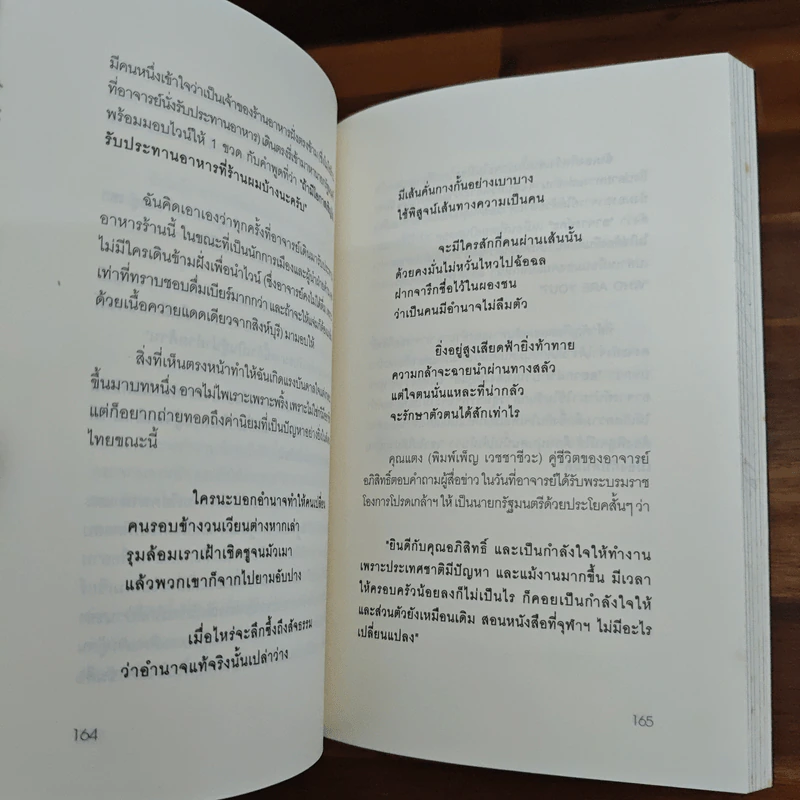 มีคนหนึ่งเข้าใจว่าเป็นเจ้าของร้านอาหารฝั่งตรงข้าม
ที่อาจารย์นั่งรับประทานอาหาร) เดินตรงที่เข้ามาหา
พร้อมมอบไวน์ให้ 1 ขวด กับคำพูดที่ว่า "ถ้ามีโอกาส
รับประทานอาหารที่ร้านผมบ้างนะครับ"
ฉันคิดเอาเองว่าทุกครั้งที่อาจารย์เดินมา
อาหารร้านนี้ ในขณะที่เป็นนักการเมืองและผู้นำฝ่าย
ไม่มีใครเดินข้ามฝั่งเพื่อนำไวน์ (ซึ่งอาจารย์คงไม่ได้ดื่ม
เท่าที่ทราบชอบดื่มเบียร์มากกว่า และถ้าจะให้
ด้วยเนื้อควายแดดเดียวจากสิงห์บุรี) มามอบให้
สิ่งที่เห็นตรงหน้าทำให้ฉันเกิดแรงบันดาลใจ
ขึ้นมาบทหนึ่ง อาจไม่ไพเราะเพราะพริ้ง เพราะไม่ใช่
แต่ก็อยากถ่ายทอดถึงค่านิยมที่เป็นปัญหาอย่าง
ไทยขณะนี้
ใครนะบอกอำนาจทำให้คนเปลี่ยน
คนรอบข้างวนเวียนต่างหากเล่า
รุมล้อมเราเฝ้าเชิดชูจนมัวเมา
แล้วพวกเขาก็จากไปยามอับปาง
เมื่อไหร่จะลึกซึ้งถึงสัจธรรม
ว่าอำนาจแท้จริงนั้นเปล่าว่าง
164
มีเส้นคั่นกางกั้นอย่างเบาบาง
ใช้พิสูจน์เส้นทางความเป็นคน
จะมีใครสักกี่คนผ่านเส้นนั้น
ด้วยคงมั่นไม่หวั่นไหวไปฉ้อฉล
ฝากจารึกชื่อไว้ในผองชน
ว่าเป็นคนมีอำนาจไม่ลืมตัว
ยิ่งอยู่สูงเสียดฟ้ายิ่งท้าทาย
ความกล้าจะฉายนำผ่านทางสลัว
แต่ใจตนนั่นแหละที่น่ากลัว
จะรักษาตัวตนได้สักเท่าไร
คุณแตง (พิมพ์เพ็ญ เวชชาชีวะ) คู่ชีวิตของอาจารย์
อภิสิทธิ์ตอบคำถามผู้สื่อข่าว ในวันที่อาจารย์ได้รับพระบรมราช
โองการโปรดเกล้าฯ ให้ เป็นนายกรัฐมนตรีด้วยประโยคสั้นๆ ว่า
"ยินดีกับคุณอภิสิทธิ์ และเป็นกำลังใจให้ทำงาน
เพราะประเทศชาติมีปัญหา และแม้งานมากขึ้น มีเวลา
ให้ครอบครัวน้อยลงก็ไม่เป็นไร ก็คอยเป็นกำลังใจให้
และส่วนตัวยังเหมือนเดิม สอนหนังสือที่จุฬาฯ ไม่มีอะไร
เปลี่ยนแปลง"
165